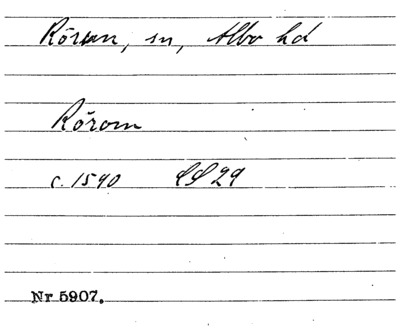 Rörum, sn, Albo hd
Rörom
c. 1590 LL 29
Nr 5907.